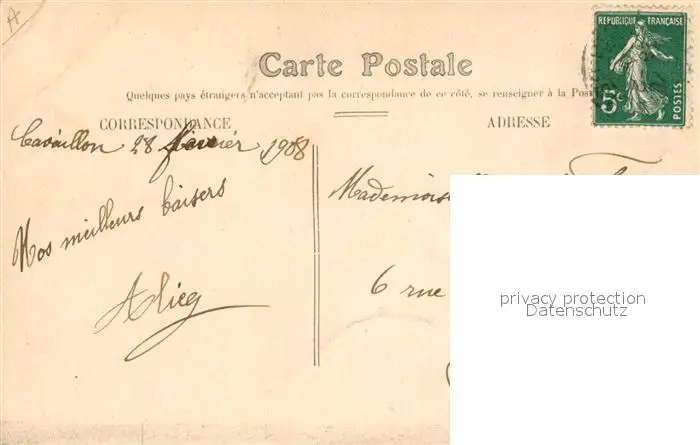 A
RÉPUBLIQUE FRANÇAISE
5c
POSTES
Carte Postale
Quelques pays étrangers n'acceptant pas la correspondance de ce côté, se renseigner à la Post
CORRESPONDANCE
ADRESSE
Cavaillon 28 février 1908
Mademois
Nos meilleurs baisers
6 rue
privacy protection
Datenschutz